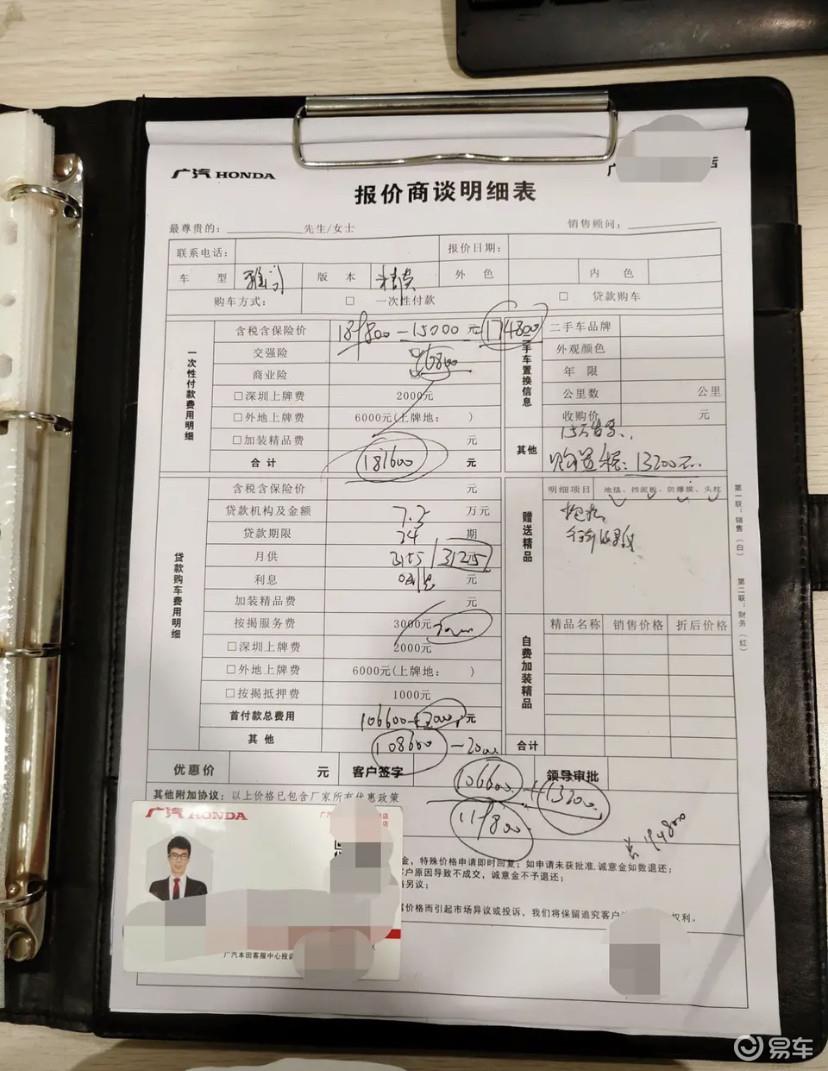 广汽 HONDA
广 店
报价商谈明细表
最尊贵的： 先生/女士 销售顾问：
联系电话： 报价日期：
车 型 雅阁 版 本 精英 外 色 内 色
购车方式： □ 一次性付款 □ 贷款购车
一次性付款费用明细
含税含保险价 189800-15000 元 174800
交强险
商业险 6800
□深圳上牌费 2000元
□外地上牌费 6000元(上牌地： )
□加装精品费 元
合计 181600 元
手车置换信息
二手车品牌
外观颜色
年 限
公里数 公里
收购价 元
其他
购置税：13200元
贷款购车费用明细
含税含保险价 元
贷款机构及金额 7.5 万元
贷款期限 24 期
月供 3125
利息 元
加装精品费 元
按揭服务费 3000元
□深圳上牌费 2000元
□外地上牌费 6000元(上牌地： )
□按揭抵押费 1000元
首付款总费用 106600+2000 元
其 他 108600-2000
赠送精品
明细项目 地毯、挡泥板、防爆膜、头枕
行车记录仪
自费加装精品
精品名称 销售价格 折后价格
合计
第一联：销售（白）
第二联：财务（红）
优惠价 元 客户签字 领导审批
106600+13200
119800
194800
其他附加协议：以上价格已包含厂家所有优惠政策
金，特殊价格申请即时回复；如申请未获批准，诚意金如数退还；
客户原因导致不成交，诚意金不予退还；
另议；
价格而引起市场异议或投诉，我们将保留追究客户 权利。
广汽 HONDA
广汽本田客服中心投诉
易车